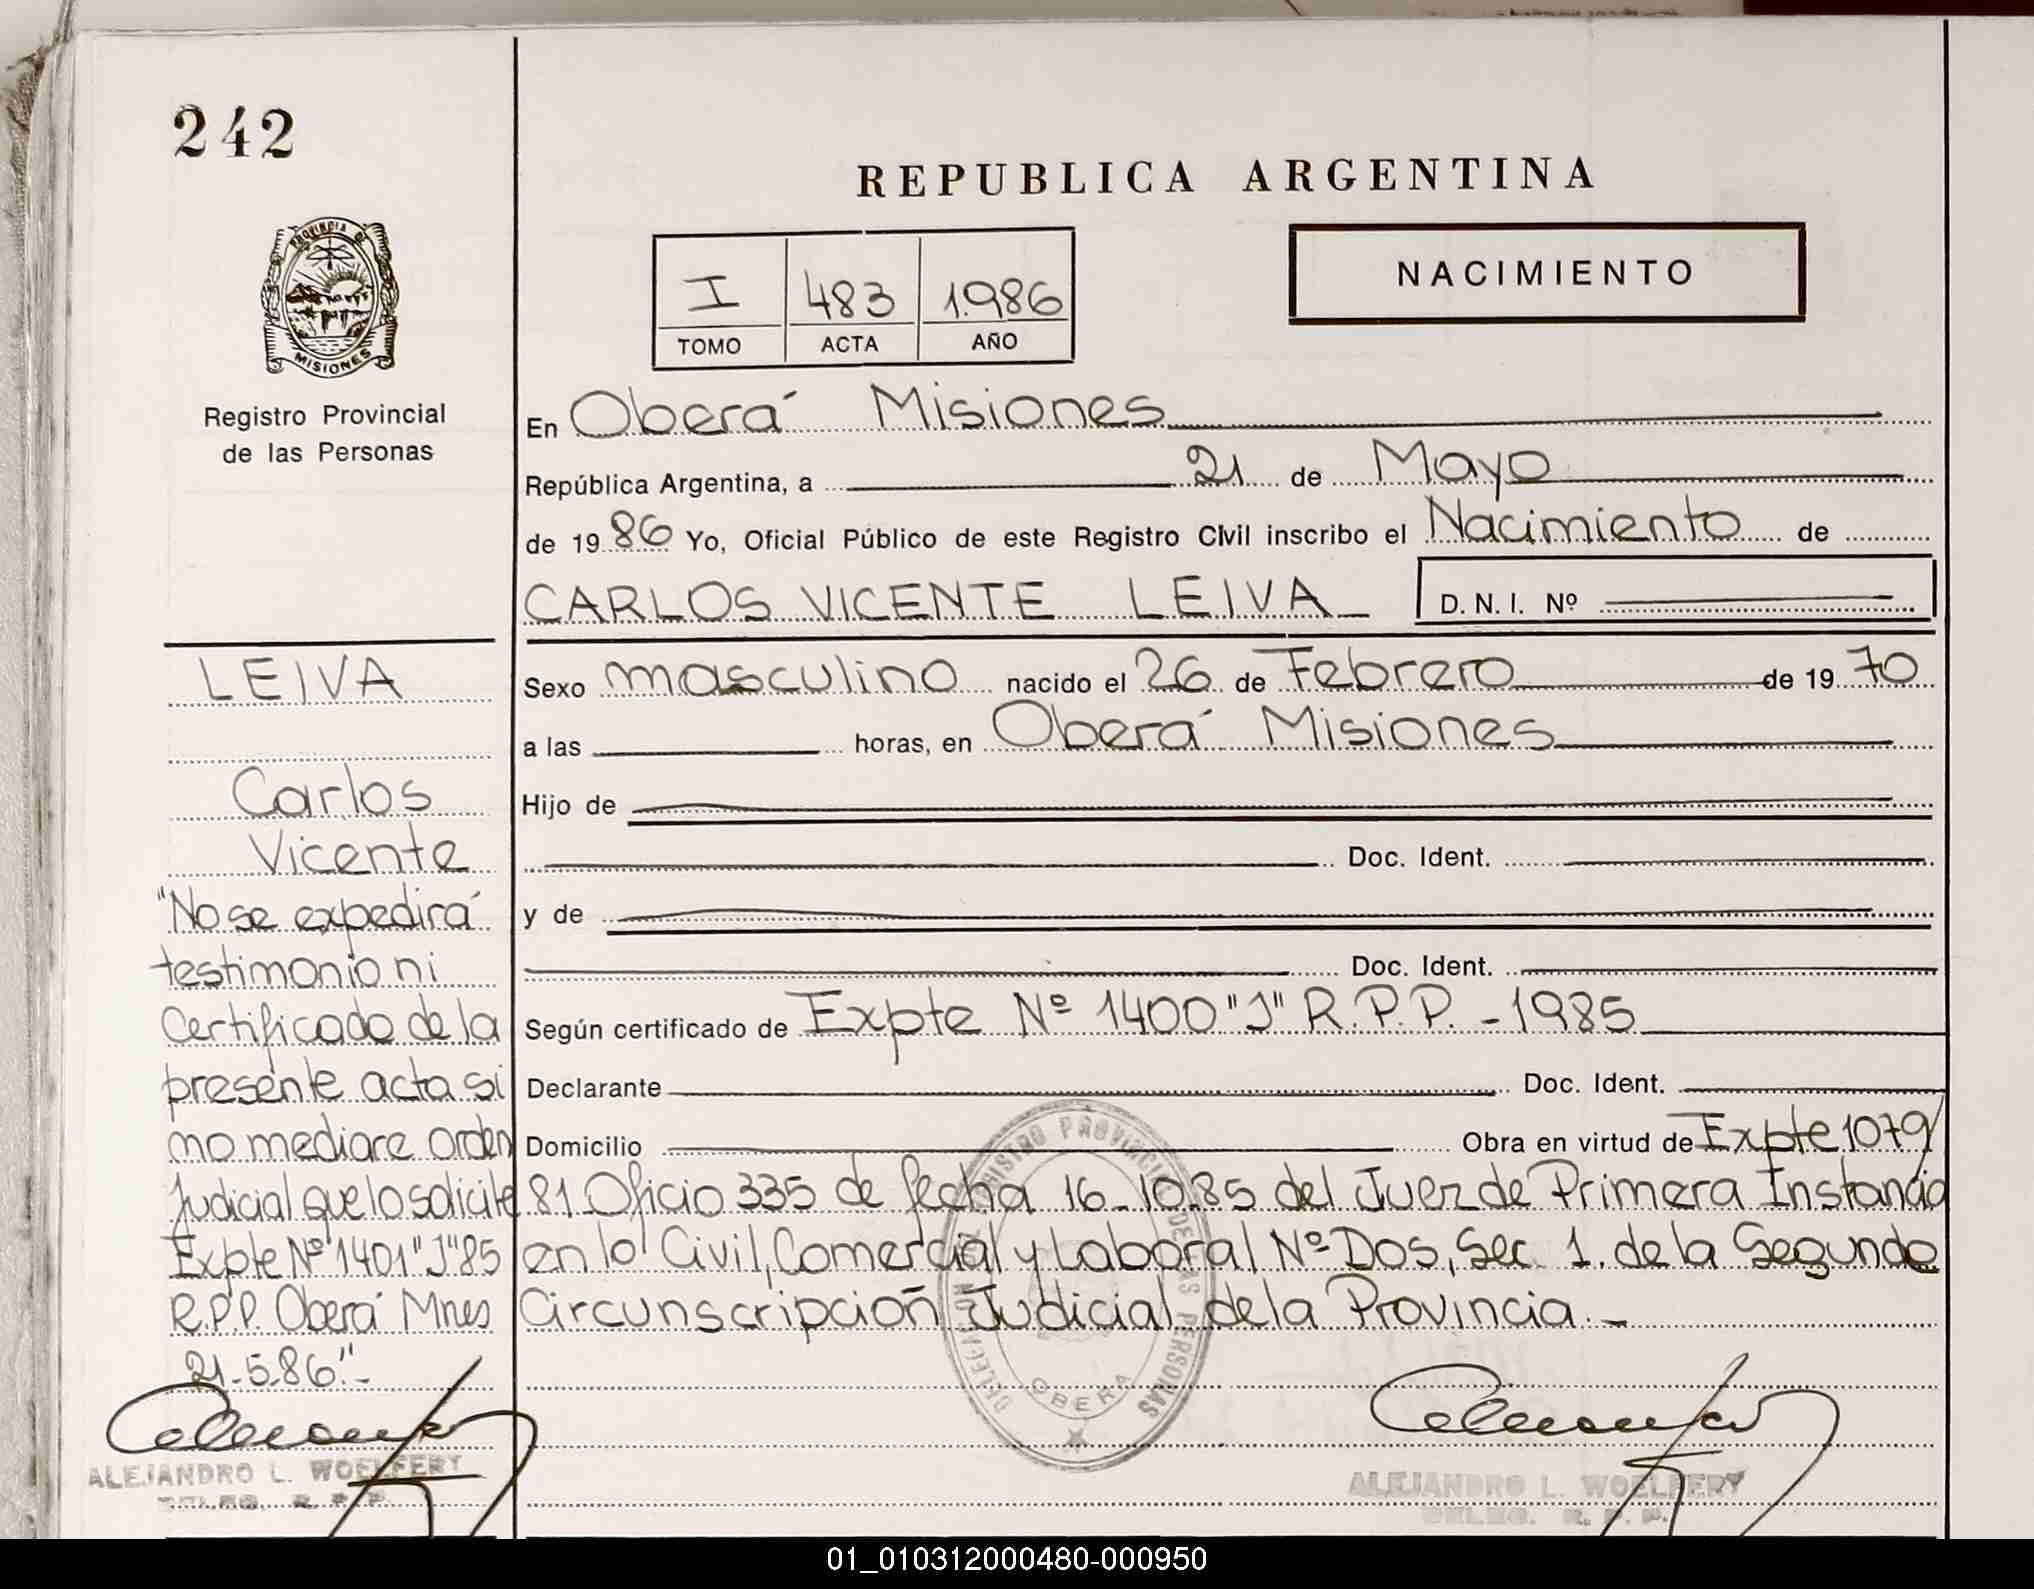 242
REPUBLICA ARGENTINA
PROVINCIA DE
MISIONES
Registro Provincial
de las Personas
I 483 1.986
TOMO ACTA AÑO
NACIMIENTO
En Oberá Misiones
República Argentina, a 21 de Mayo
de 1986 Yo, Oficial Público de este Registro Civil inscribo el Nacimiento de
CARLOS VICENTE LEIVA D. N. I. Nº
Sexo masculino nacido el 26 de Febrero de 1970
a las horas, en Oberá Misiones
Hijo de
Doc. Ident.
y de
Doc. Ident.
Según certificado de Expte Nº 1400 "J" R.P.P. - 1985
Declarante Doc. Ident.
Domicilio Obra en virtud de Expte 1079/
81 Oficio 335 de fecha 16-10.85 del Juez de Primera Instancia
en lo Civil, Comercial y Laboral Nº Dos, Sec. 1. de la Segunda
Circunscripción Judicial de la Provincia.-
LEIVA
Carlos
Vicente
"No se expedirá
testimonio ni
Certificado de la
presente acta si
no mediare orden
Judicial que lo solicite
Expte Nº 1401 "J" 85
R.P.P. Oberá Mnes
21-5-86"-
REGISTRO PROVINCIAL DE LAS PERSONAS
DELEGACION
OBERA
ALEJANDRO L. WOELFERY
DELEG. R. P. P.
ALEJANDRO L. WOELFERY
DELEG. R. P. P.
01_010312000480-000950